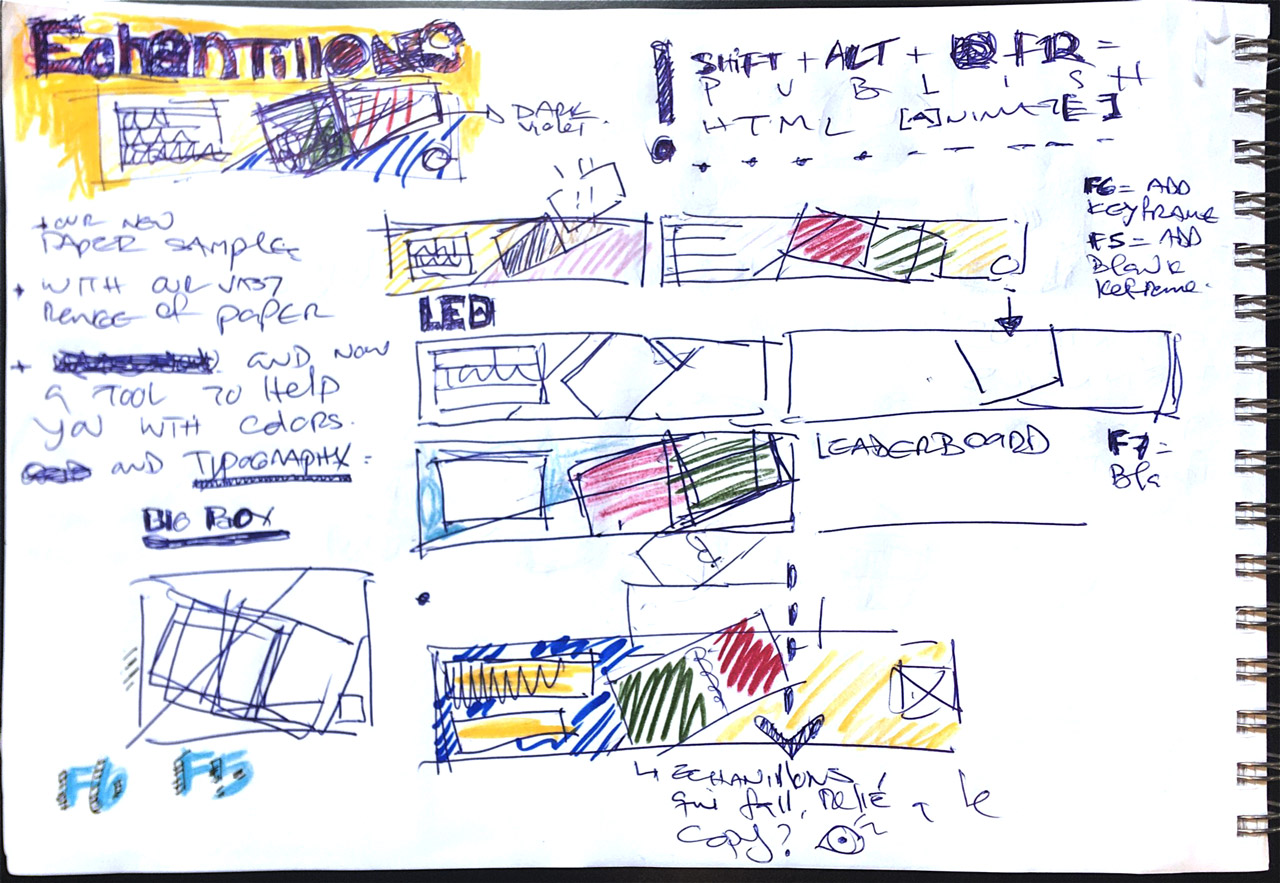 EchanTillONS
SHIFT + ALT + F12 =
P U B L I S H
HTML [A]NIMATE]
DARK
Violet.
+ OUR NEW
PAPER SAMPLE
+ WITH OUR VAST
RANGE of PAPER
+ AND NOW
A TOOL TO HELP
YOU WITH COLORS.
AND TYPOGRAPHY:
F6 = ADD
KEYFRAME
F5 = ADD
Blank
Keframe.
LED
LEADERBOARD
F7 =
Bla
BIG BOX
F6 F5
4 ECHANTILLONS
qui fall,
copy?